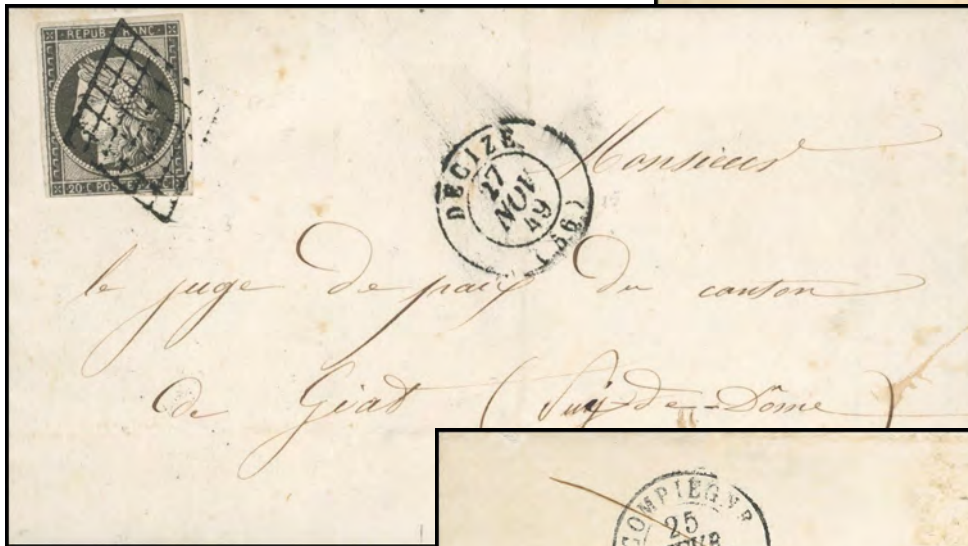 REPUB. FRANC.
20 C POSTE 20 C
DECIZE
27
NOV
49
(56)
Monsieur
le juge de paix du canton
de Giat (Puy-de-Dôme)
COMPIEGNE
25